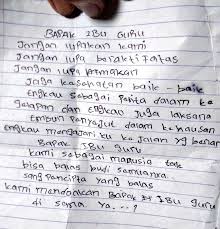 BAPAK IBU GURU
Jangan lupakan kami
Jangan lupa beraktifatas
Jangan lupa permakan
Jaga kasehatan baik - baik
Engkau sebagai Pelita dalam ke
gelapan dan engkau juga laksana
Embun Penyajul dalam kehausan
engkau mengajari ku ke jalan yg benar
Bapak IBU guru
kami sebagai manusia tak
bisa balas budi semuanya.
sang pencipta yang balas
kami mendoakan BAPAK IBU Guru
di sana. Ya...?